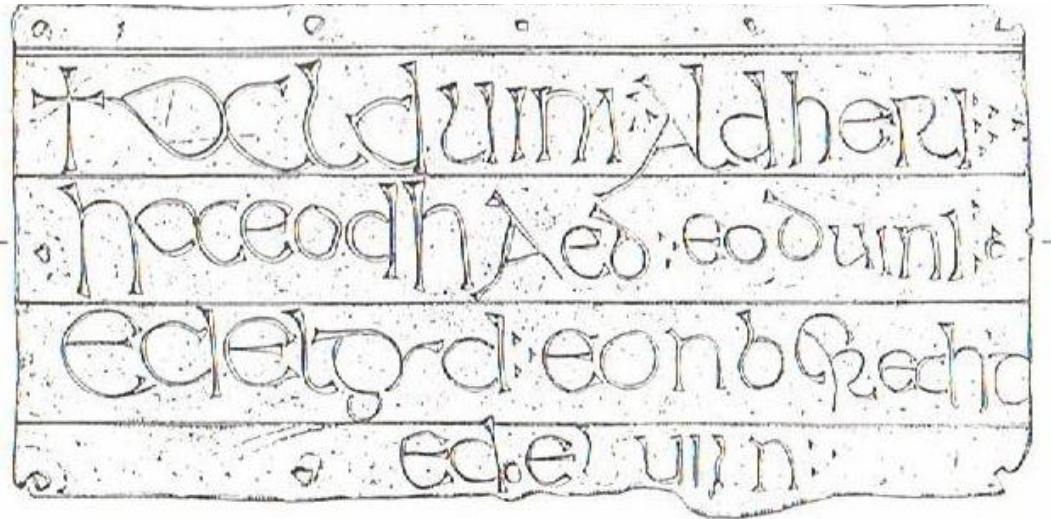 + aelduini: Aldheri:
haeodhAed: eoduini:
Edelgyd: eonbRecht
edeluin: